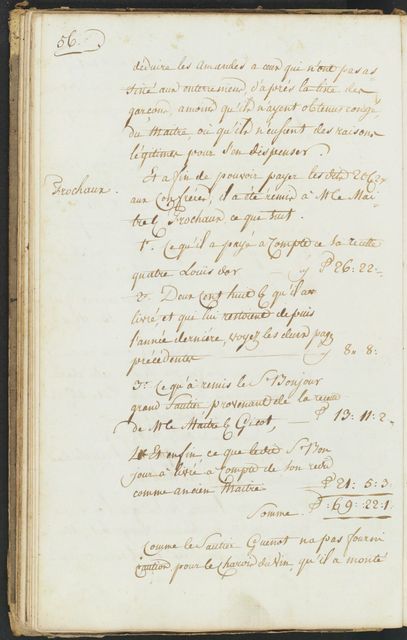 56.
déduire les Amandes a ceux qui n'ont pas as
sisté aux enterremens, d'après la liste des
garçons, amoins qu'ils n'ayent obtenus congé
du Maitre, ou qu'ils n'eussent des raisons
légitimes pour s'en dispenser
Et afin de pouvoir payer les dits
aux Confrères, il a été remis à Mr le Mai
Frochaux.
tre Frochaux, ce que suit.
1°. Ce qu'il a payé a Compte de sa recette
quatre Louis d'or 26: 22:
2°. Deux Cens huit qu'il a
livré et que lui restoient depuis
l'année dernière, voyez les deux pages
précédentes 8" 8:
3°. Ce qu'à remis le Sr Bonjour
grand Sautier provenant de la recette
de Mr le Maitre Gicot, 13: 11: 2
4° Et enfin, ce que le dit Sr Bon
jour a livré a Compte de son
comme ancien Maitre 21: 5: 3
Somme 69: 22: 1
Comme le Sautier Guenot n'a pas fourni
caution pour le Charois du Vin, qu'il a monté